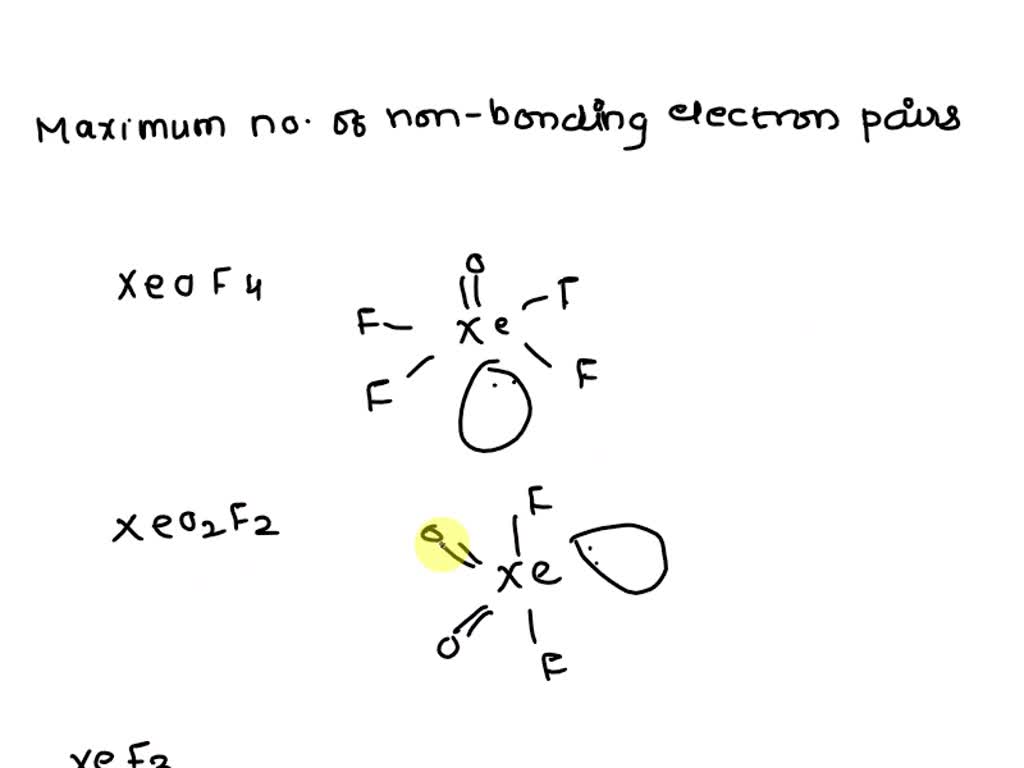 Maximum no. of non-bonding electron pairs
XeOF4
O
F Xe F
F F
XeO2F2
F
O Xe
O F
XeF2